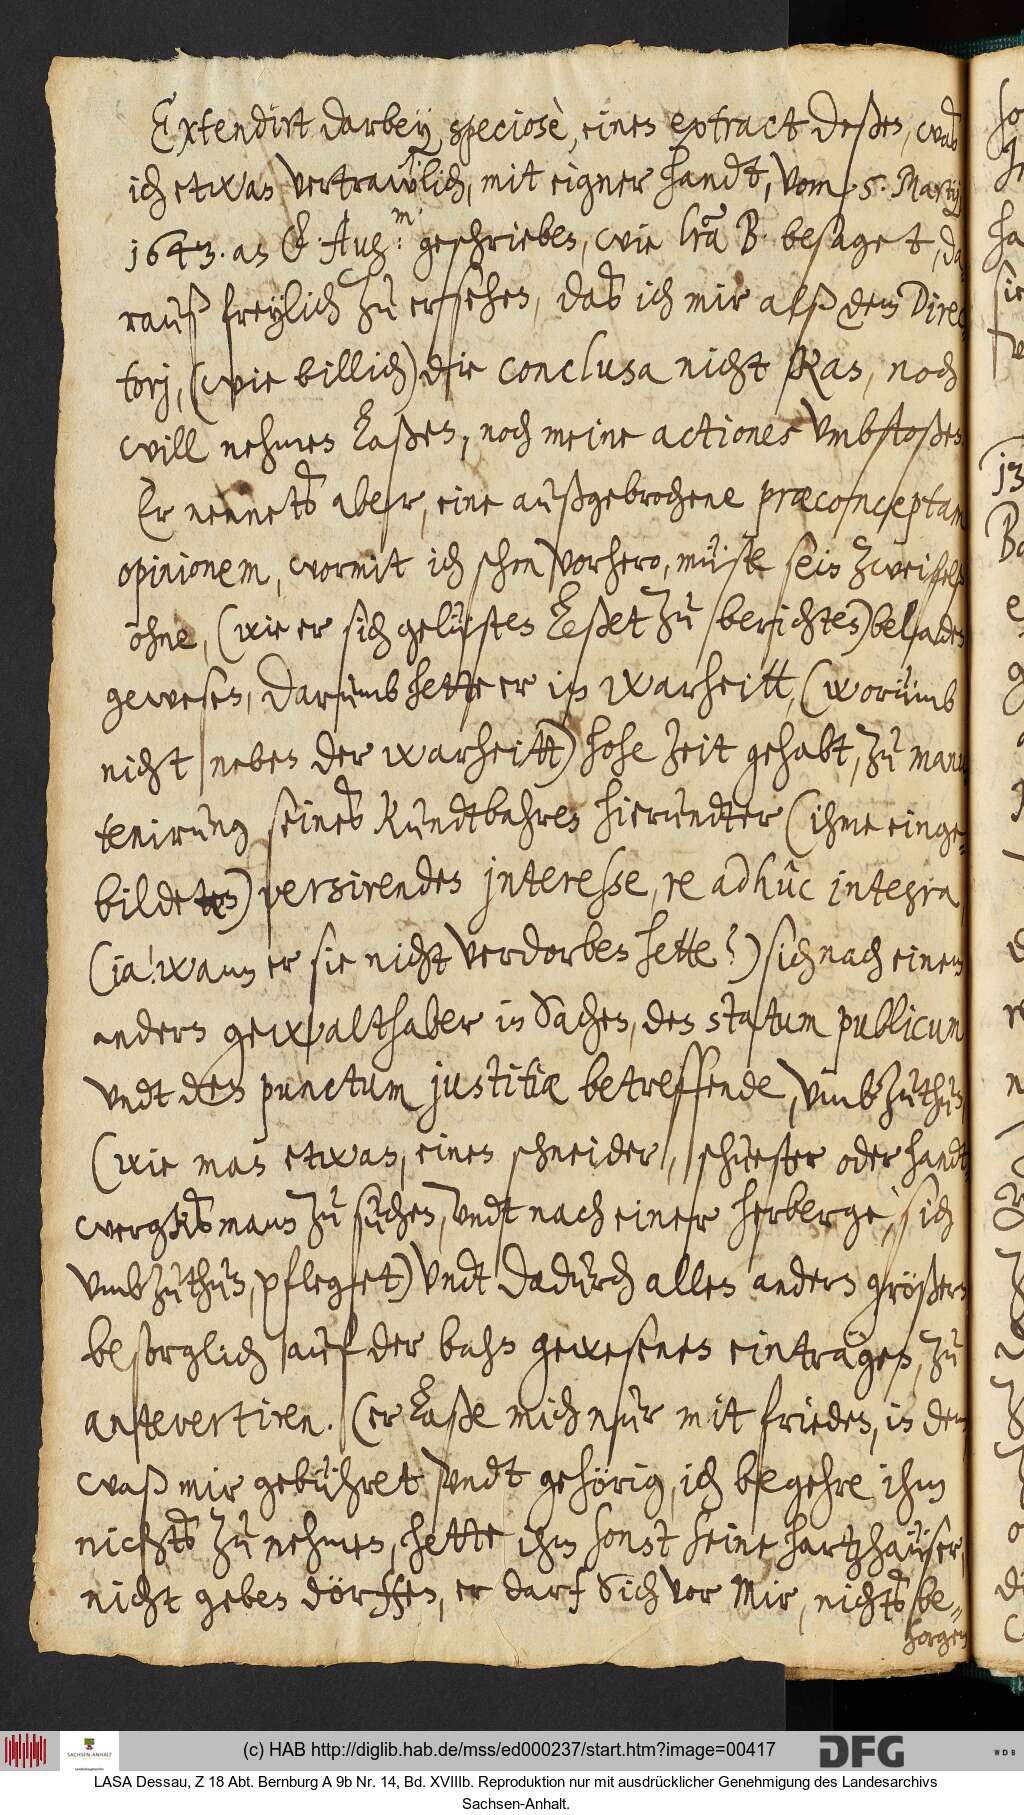 Extendirt darbey speciosè, einen extract deßen, was
ich etwas vertrawlich, mit eigner handt, vom 5. Martij
1643. an F. Aug:m. geschrieben, wie lra B. besaget, da,
rauß freylich zu ersehen, das ich mir alß dem Direc
torj, (wie billich) die conclusa nicht kan, noch
will nehmen laßen, noch meine actiones vmbstoßen
Er nennets aber, eine außgebrochene præconceptam
opinionem, wormit ich schon vorhero, müste sein zweifelß
ohne, (wie er sich gelüsten leßet zu berichten) beladen
gewesen, darumb hette er in warheitt, (worumb
nicht neben der warheitt) hohe zeit gehabt, zu manu
tenirung seines kundtbahren hierundter (ihme einge=
bildeten) versirenden jnteresse, re adhuc integra
(ja! wann er sie nicht verdorben hette?) sich nach einem
andern gewalthaber in Sachen, den statum publicum
vndt den punctum justitiæ betreffende, vmbzuthun
(wie man etwan, einen schneider, schuester oder handt
wergksmann zu suchen, vndt nach einer herberge, sich
vmbzuthun, pfleget) vndt dadurch allen andern größern
besorglich auf der bahn gewesenen einträgen, zu
antevertiren. (er laße mich nur mit frieden, in dem
waß mir gebühret vndt gehörig, ich begehre ihm
nichts zu nehmen, hette ihm sonst seine hartzhäuser
nicht geben dörffen, er darf Sich vor Mir, nichts be=
sorgen
(c) HAB http://diglib.hab.de/mss/ed000237/start.htm?image=00417
SACHSEN-ANHALT
DFG
WDB
LASA Dessau, Z 18 Abt. Bernburg A 9b Nr. 14, Bd. XVIIIb. Reproduktion nur mit ausdrücklicher Genehmigung des Landesarchivs
Sachsen-Anhalt.